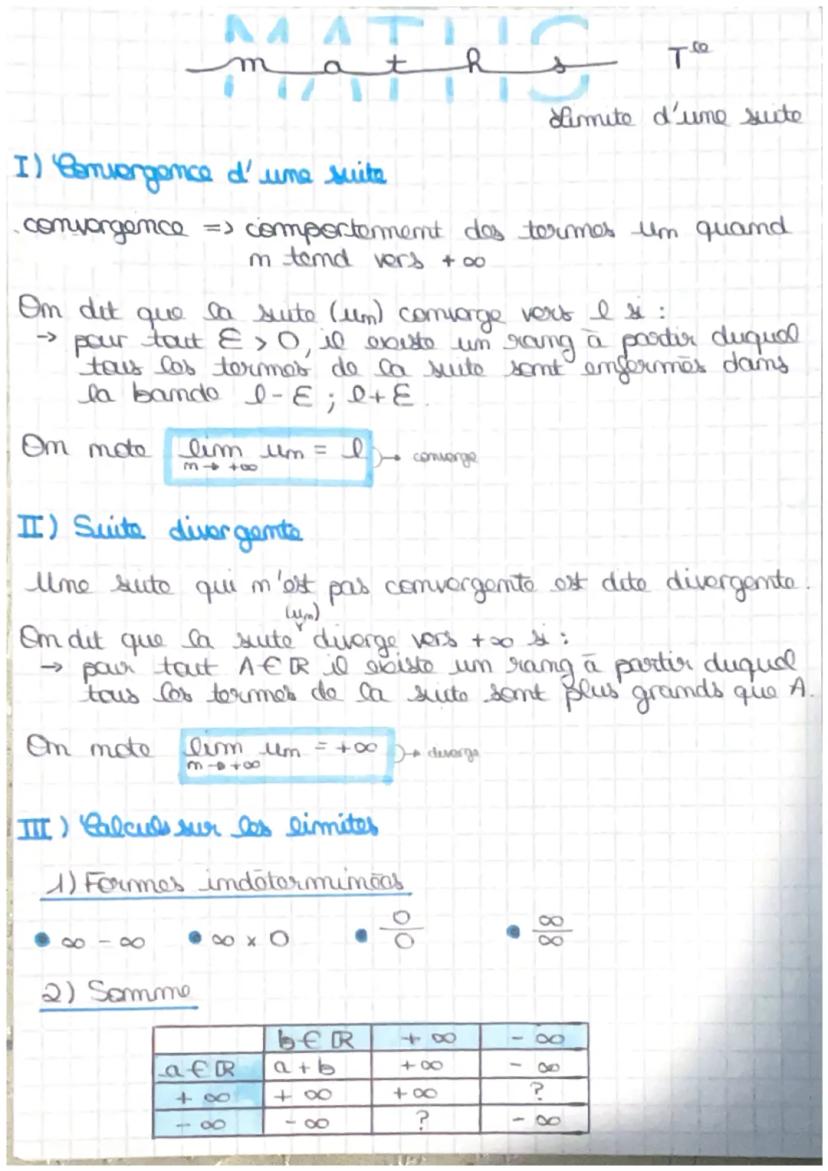 MATHS
maths Tle
Limite d'une suite
I) Convergence d'une suite
convergence => comportement des termes un quand
n tend vers +∞
On dit que la suite (un) converge vers l si :
→ pour tout ε > 0, il existe un rang à partir duquel
tous les termes de la suite sont enfermés dans
la bande l-ε ; l+ε.
On note lim un = l → converge
n → +∞
II) Suite divergente
Une suite qui n'est pas convergente est dite divergente.
(un)
On dit que la suite diverge vers +∞ si :
→ pour tout A ∈ ℝ il existe un rang à partir duquel
tous les termes de la suite sont plus grands que A.
On note lim un = +∞ → diverge
n → +∞
III) Calculs sur les limites
1) Formes indéterminées
• ∞ - ∞ • ∞ x 0 • 0/0 • ∞/∞
2) Somme
b ∈ ℝ +∞ -∞
a ∈ ℝ a + b +∞ -∞
+∞ +∞ +∞ ?
-∞ -∞ ? -∞